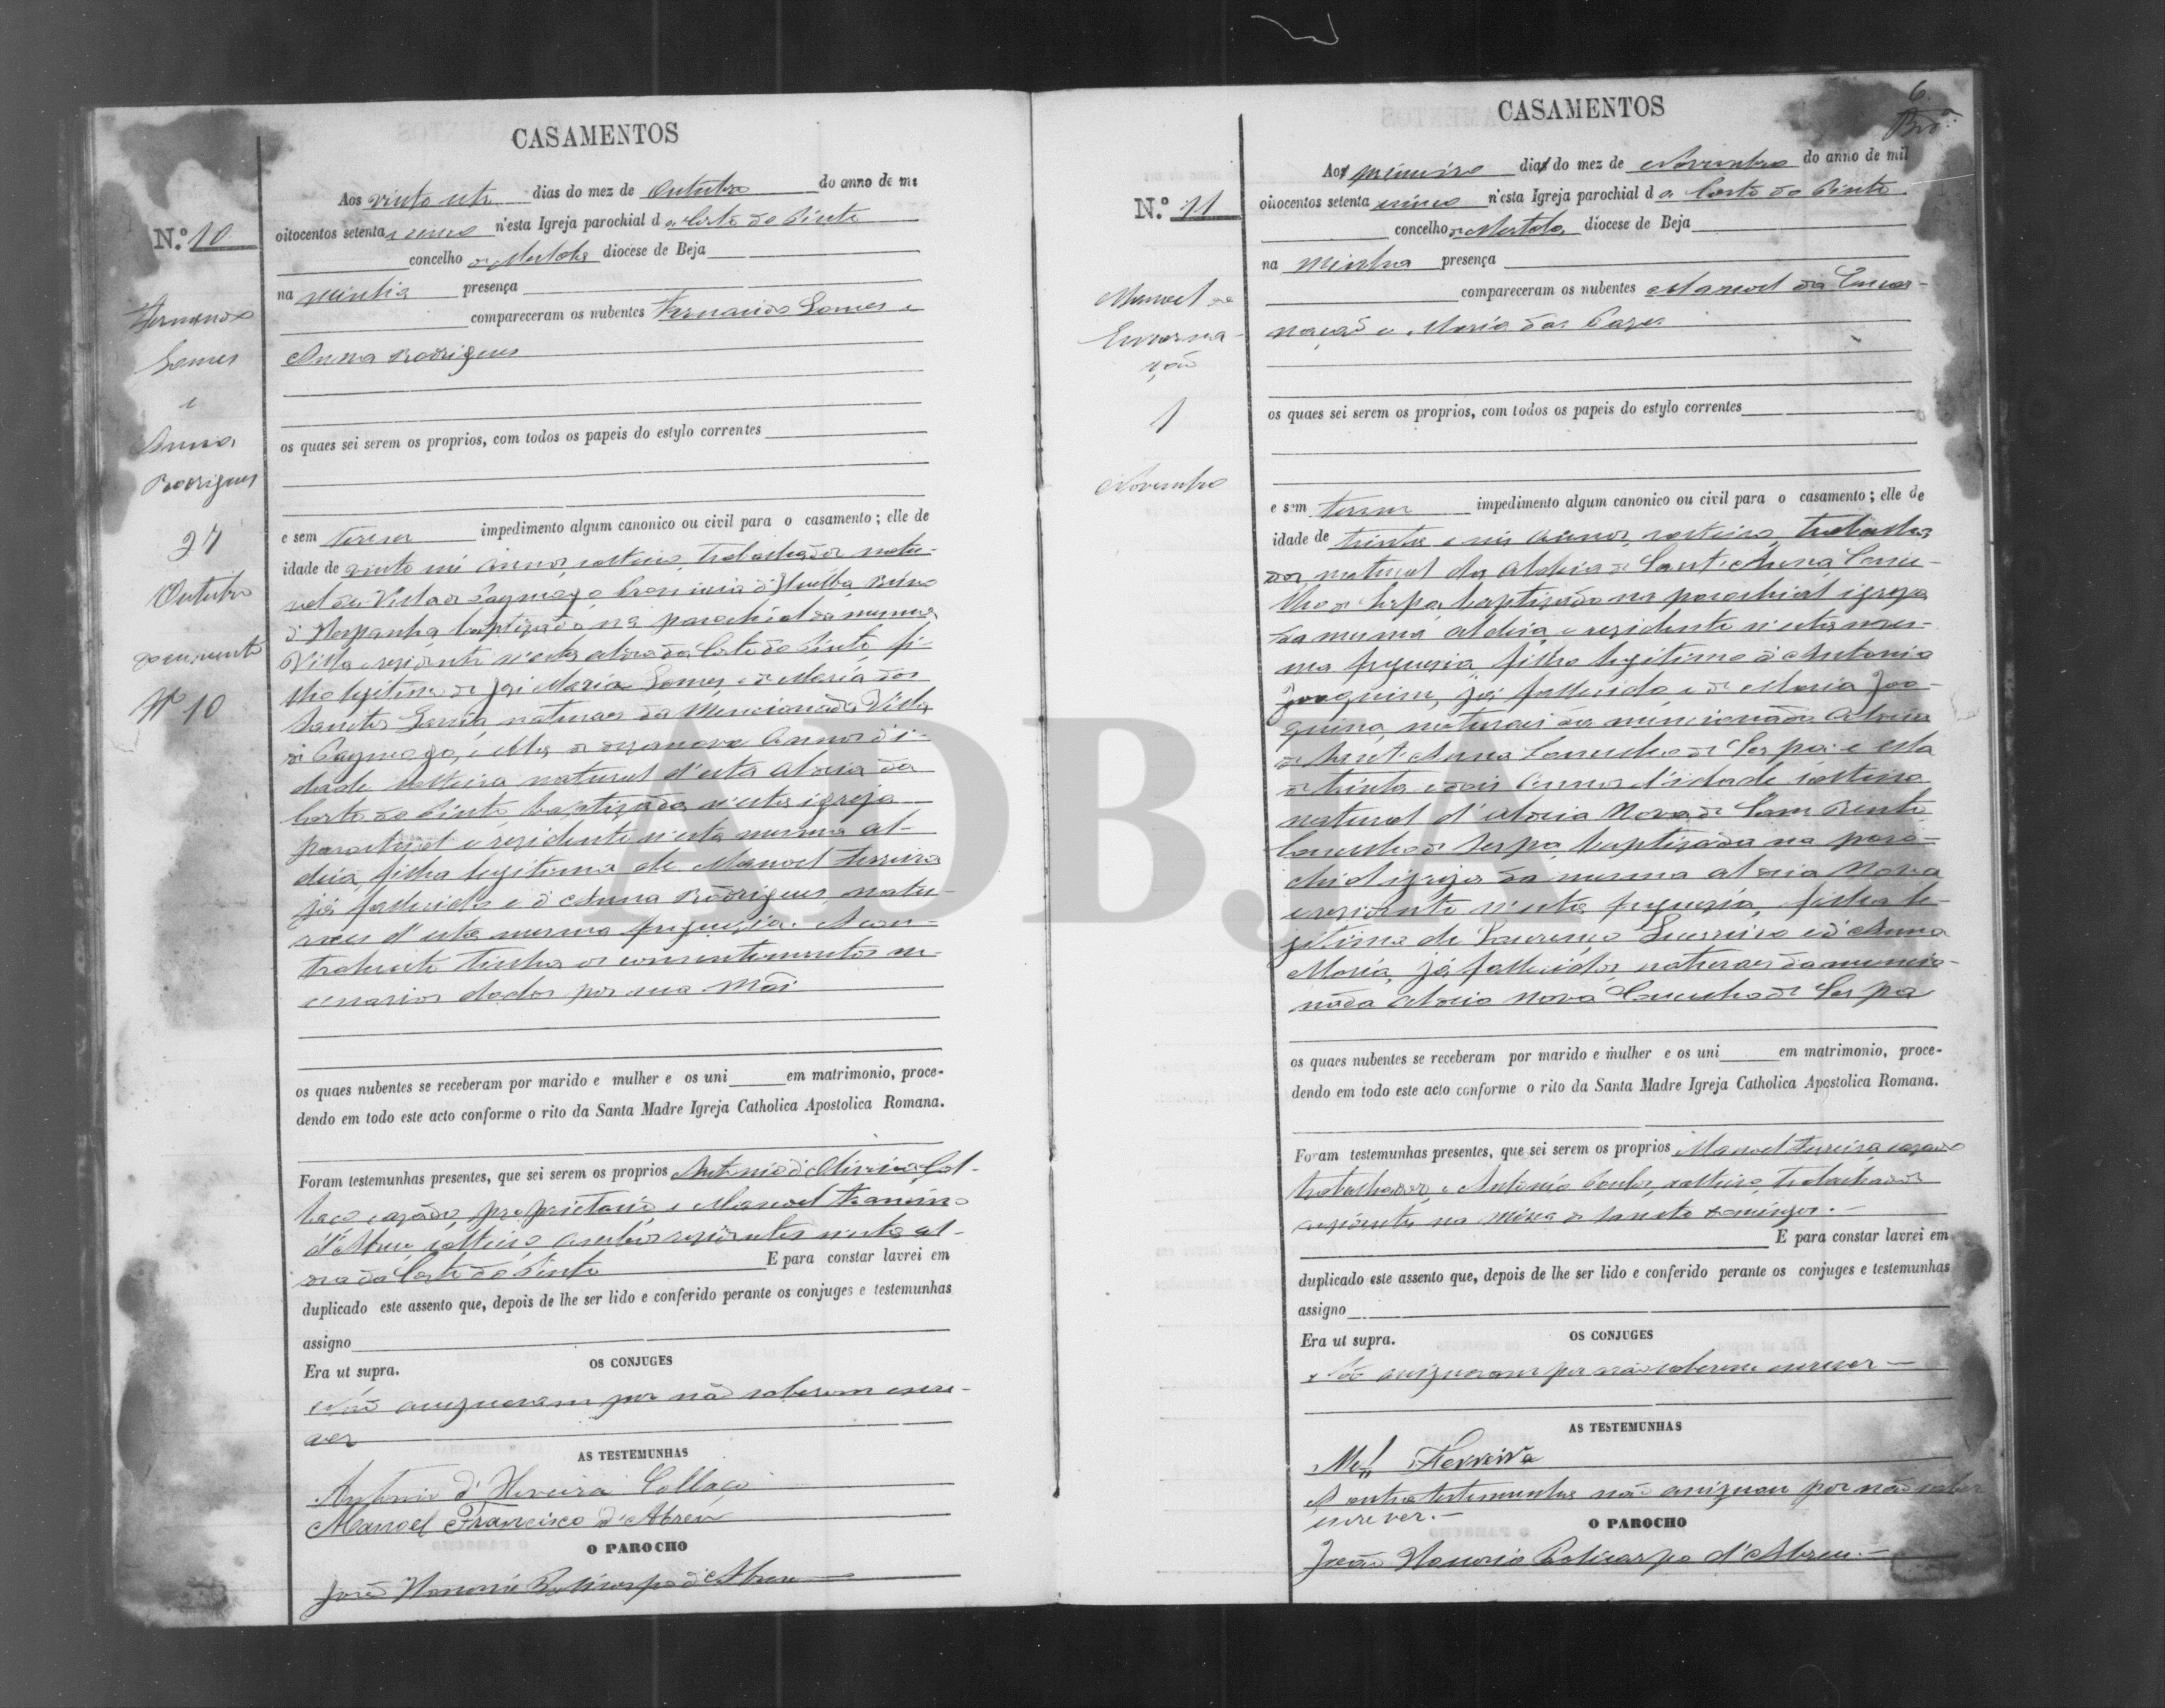 CASAMENTOS
N.º 10
Aos vinte sete dias do mez de Outubro do anno de mi
oitocentos setenta e cinco n'esta Igreja parochial da Corte do Pinto
concelho de Mertola diocese de Beja
na minha presença
compareceram os nubentes Fernando Gomes e
Anna Rodrigues
os quaes sei serem os proprios, com todos os papeis do estylo correntes
e sem terem impedimento algum canonico ou civil para o casamento; elle de
idade de vinte seis annos, solteiro, trabalhador natu-
ral da Villa de Paymogo Provincia d'Huelba Reino
d'Hespanha, baptizado na parochial da mesma
Villa e residente n'esta aldeia da Corte do Pinto fi-
lho legitimo de José Maria Gomes e de Maria dos
Sanctos Garcia, naturaes da mencionada Villa
de Paymogo, e ella, de dezanove annos d'i-
dade solteira natural d'esta aldeia da
Corte do Pinto, baptizada n'esta igreja
parochial e residente n'esta mesma al-
deia, filha legitima de Manoel Ferreira
já fallecido e d'Anna Rodrigues, natu-
raes d'esta mesma freguezia. A con-
trahente tinha os consentimentos ne-
cessarios dados por sua Mãi
os quaes nubentes se receberam por marido e mulher e os uni em matrimonio, proce-
dendo em todo este acto conforme o rito da Santa Madre Igreja Catholica Apostolica Romana.
Foram testemunhas presentes, que sei serem os proprios Antonio d'Oliveira Col-
laço cazado, proprietario e Manoel Francisco
d'Abreu, solteiro, ambos rezidentes n'esta al-
deia da Corte do Pinto E para constar lavrei em
duplicado este assento que, depois de lhe ser lido e conferido perante os conjuges e testemunhas
assigno
Era ut supra.
OS CONJUGES
Não assignaram por não saberem escre-
ver
AS TESTEMUNHAS
Antonio d'Oliveira Collaço
Manoel Francisco d'Abreu
O PAROCHO
João Honorio Policarpo d'Abreu
Fernando
Gomes
e
Anna
Rodrigues
27
Outubro
documento
Nº 10
CASAMENTOS
6.
N.º 11
Aos primeiro dias do mez de Novembro do anno de mil
oitocentos setenta cinco n'esta Igreja parochial da Corte do Pinto
concelho de Mertola, diocese de Beja
na minha presença
compareceram os nubentes Manoel da Encar-
nação e Maria das Pazes
os quaes sei serem os proprios, com todos os papeis do estylo correntes
e sem terem impedimento algum canonico ou civil para o casamento; elle de
idade de trinta e seis annos, solteiro, trabalha
dor, natural da Aldeia de Sant'Anna Conce-
lho de Serpa, baptizado na parochial igreja
da mesma aldeia, e rezidente n'esta mes-
ma freguezia, filho legitimo d'Antonio
Joaquim, já fallecido e de Maria Joa-
quina, naturaes da mencionada Aldeia
de Sant'Anna Concelho de Serpa: e ella
de trinta e dois annos d'idade solteira
natural d'Aldeia Nova de Sam Bento
Concelho de Serpa, baptizada na paro-
chial igreja da mesma aldeia Nova
e rezidente n'esta freguezia, filha le-
gitima de Lourenço Guerreiro e d'Anna
Maria, já fallecidos, naturaes da mencio-
nada aldeia Nova Concelho de Serpa
os quaes nubentes se receberam por marido e mulher e os uni em matrimonio, proce-
dendo em todo este acto conforme o rito da Santa Madre Igreja Catholica Apostolica Romana.
Foram testemunhas presentes, que sei serem os proprios Manoel Ferreira, cazado
trabalhador, e Antonio Carlos, solteiro, trabalhador
rezidentes na Mina de Sancto Domingos.
E para constar lavrei em
duplicado este assento que, depois de lhe ser lido e conferido perante os conjuges e testemunhas
assigno
Era ut supra.
OS CONJUGES
Não assignaram por não saberem escrever
AS TESTEMUNHAS
Mel Ferreira
A outra testemunha não assignou por não saber
escrever.
O PAROCHO
João Honorio Policarpo d'Abreu.
Manoel da
Encarna-
ção
1
Novembro
ADBJA